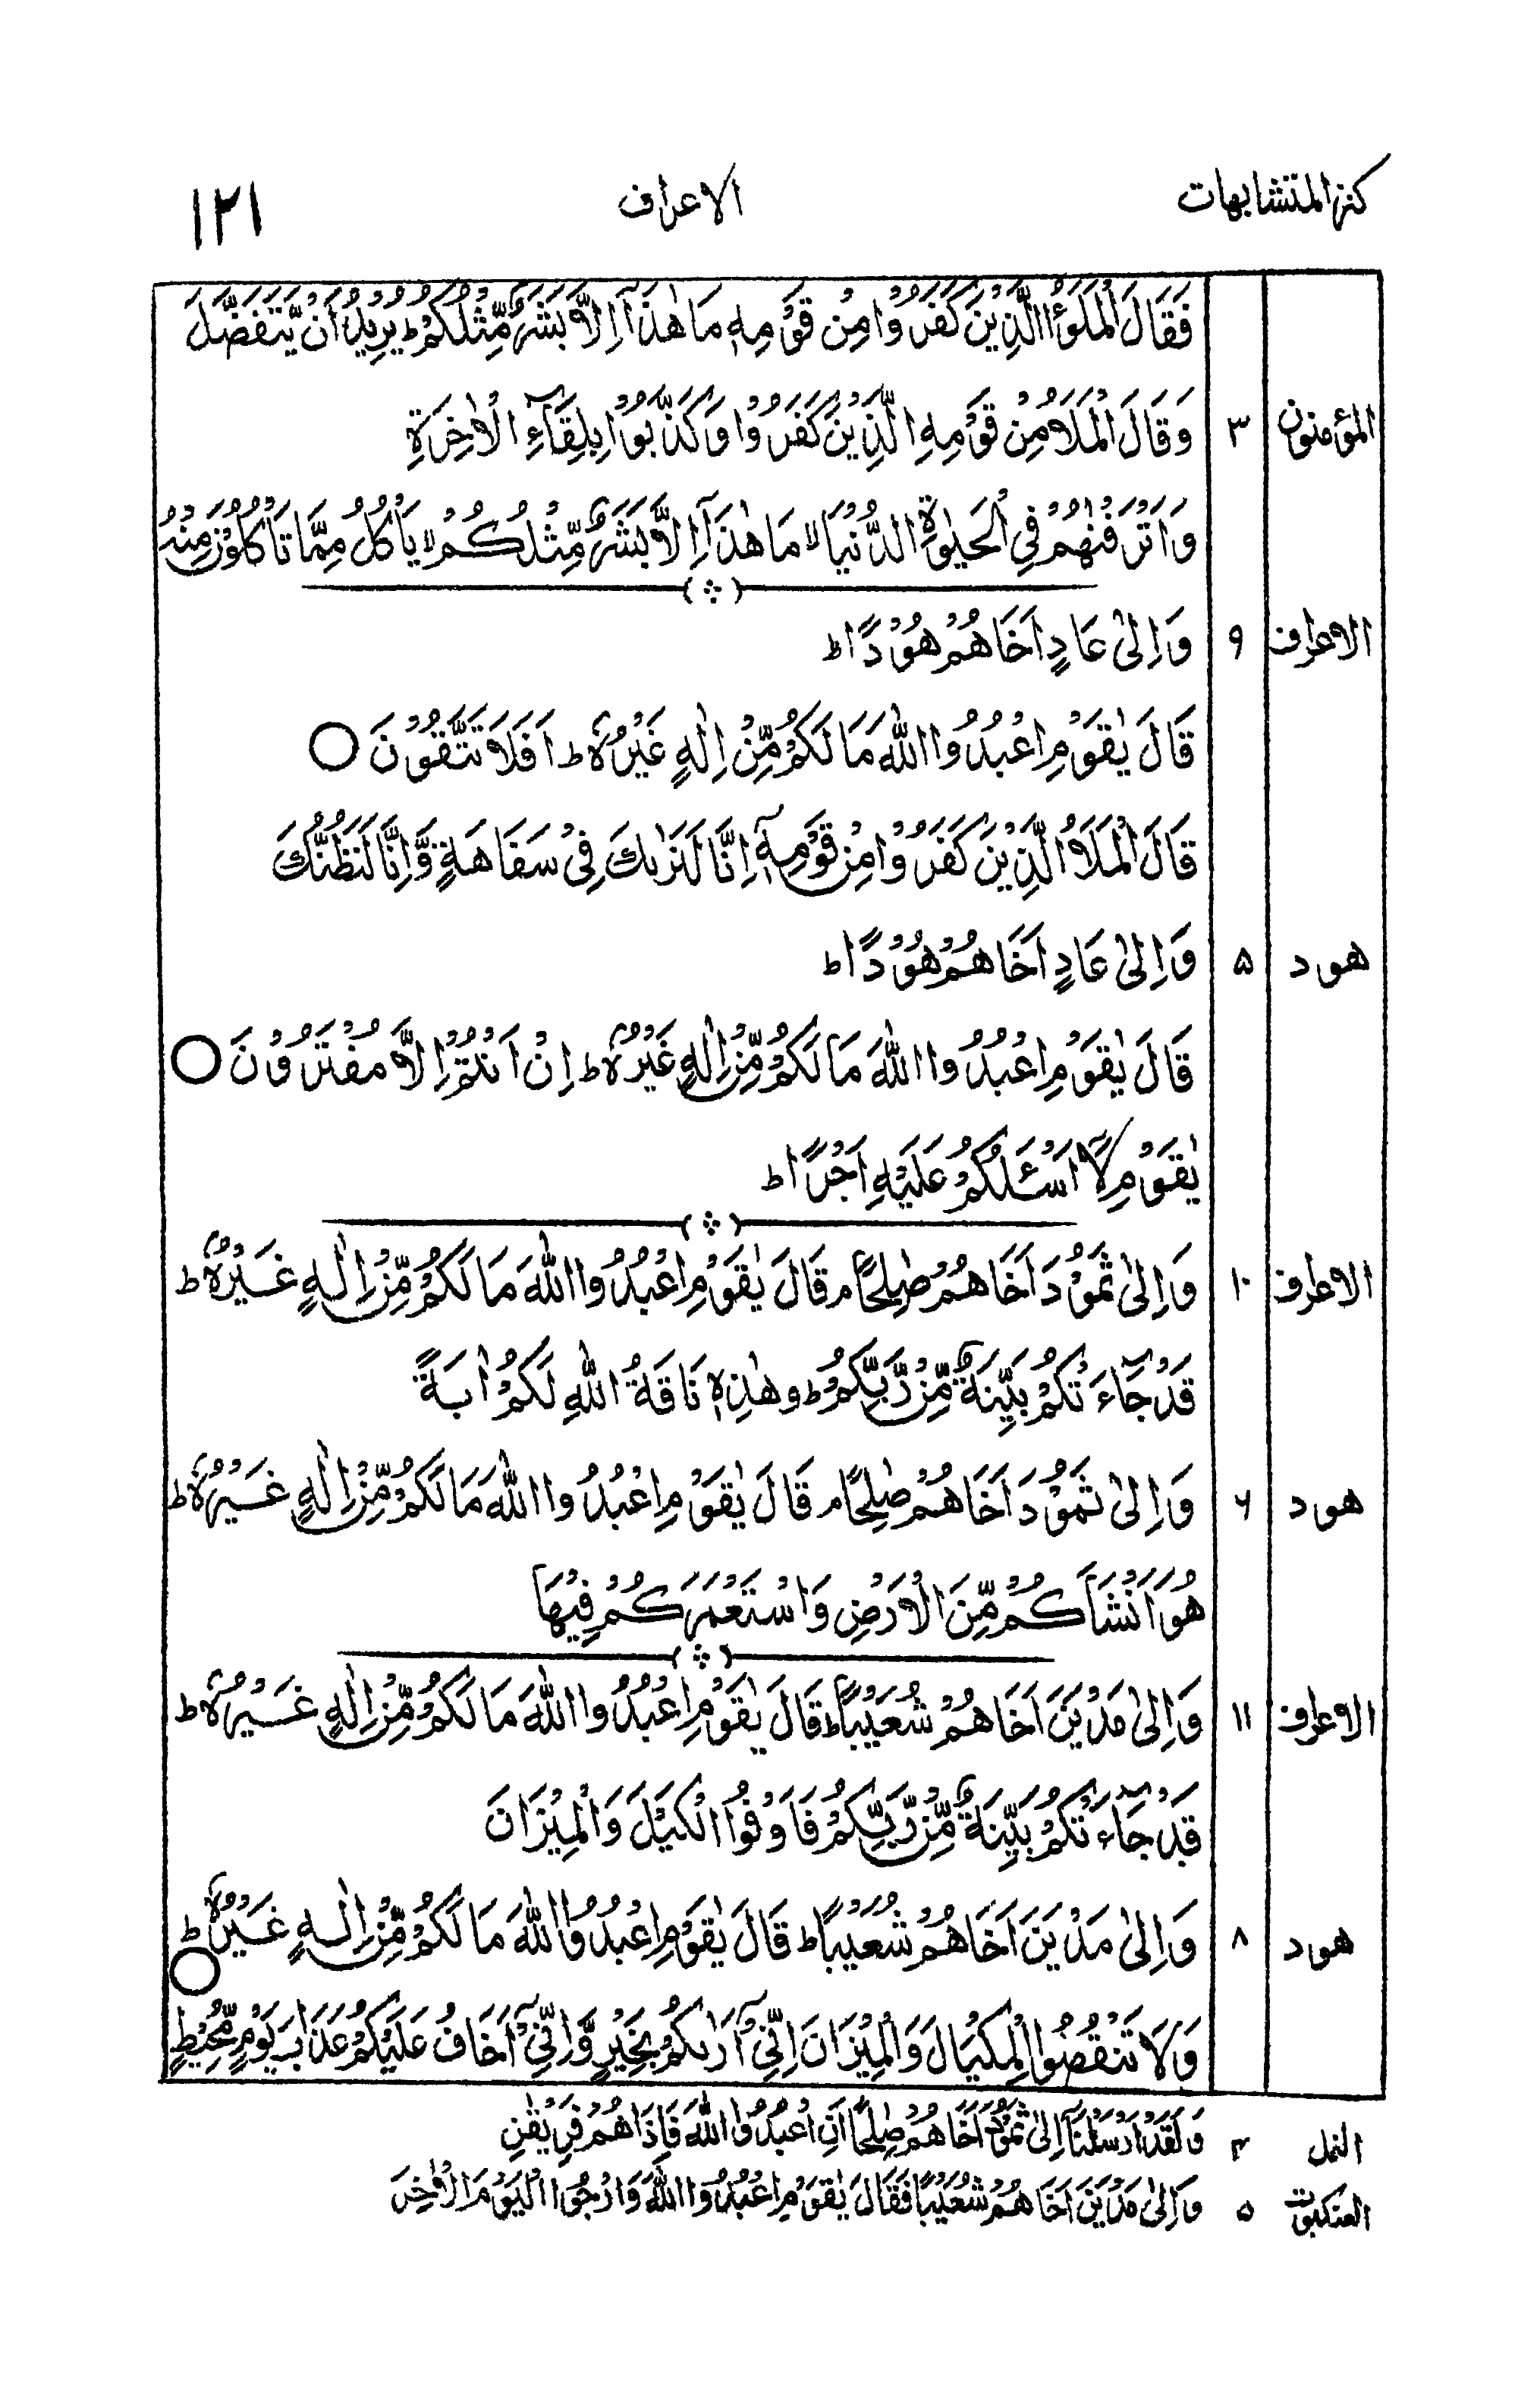 كنز المتشابهات الاعراف ١٢١
فَقَالَ الْمَلَؤُا الَّذِيْنَ كَفَرُوْا مِنْ قَوْمِهٖ مَا هٰذَآ اِلَّا بَشَرٌ مِّثْلُكُمْ ط يُرِيْدُ اَنْ يَّتَفَضَّلَ
المؤمنون ٣ وَقَالَ الْمَلَاُ مِنْ قَوْمِهِ الَّذِيْنَ كَفَرُوْا وَكَذَّبُوْا بِلِقَآءِ الْاٰخِرَةِ
وَاَتْرَفْنٰهُمْ فِي الْحَيٰوةِ الدُّنْيَا لا مَا هٰذَآ اِلَّا بَشَرٌ مِّثْلُكُمْ لا يَاْكُلُ مِمَّا تَاْكُلُوْنَ مِنْهُ
الاعراف ٩ وَاِلٰى عَادٍ اَخَاهُمْ هُوْدًا ط
قَالَ يٰقَوْمِ اعْبُدُوا اللّٰهَ مَا لَكُمْ مِّنْ اِلٰهٍ غَيْرُهٗ ط اَفَلَا تَتَّقُوْنَ ○
قَالَ الْمَلَاُ الَّذِيْنَ كَفَرُوْا مِنْ قَوْمِهٖٓ اِنَّا لَنَرٰىكَ فِيْ سَفَاهَةٍ وَّاِنَّا لَنَظُنُّكَ
هود ۵ وَاِلٰى عَادٍ اَخَاهُمْ هُوْدًا ط
قَالَ يٰقَوْمِ اعْبُدُوا اللّٰهَ مَا لَكُمْ مِّنْ اِلٰهٍ غَيْرُهٗ ط اِنْ اَنْتُمْ اِلَّا مُفْتَرُوْنَ ○
يٰقَوْمِ لَآ اَسْئَلُكُمْ عَلَيْهِ اَجْرًا ط
الاعراف ١٠ وَاِلٰى ثَمُوْدَ اَخَاهُمْ صٰلِحًا م قَالَ يٰقَوْمِ اعْبُدُوا اللّٰهَ مَا لَكُمْ مِّنْ اِلٰهٍ غَيْرُهٗ ط
قَدْ جَآءَتْكُمْ بَيِّنَةٌ مِّنْ رَّبِّكُمْ ط وهٰذِهٖ نَاقَةُ اللّٰهِ لَكُمْ اٰيَةً
هود ۶ وَاِلٰى ثَمُوْدَ اَخَاهُمْ صٰلِحًا م قَالَ يٰقَوْمِ اعْبُدُوا اللّٰهَ مَا لَكُمْ مِّنْ اِلٰهٍ غَيْرُهٗ ط
هُوَ اَنْشَاَكُمْ مِّنَ الْاَرْضِ وَاسْتَعْمَرَكُمْ فِيْهَا
الاعراف ١١ وَاِلٰى مَدْيَنَ اَخَاهُمْ شُعَيْبًا ط قَالَ يٰقَوْمِ اعْبُدُوا اللّٰهَ مَا لَكُمْ مِّنْ اِلٰهٍ غَيْرُهٗ ط
قَدْ جَآءَتْكُمْ بَيِّنَةٌ مِّنْ رَّبِّكُمْ فَاَوْفُوا الْكَيْلَ وَالْمِيْزَانَ
هود ٨ وَاِلٰى مَدْيَنَ اَخَاهُمْ شُعَيْبًا ط قَالَ يٰقَوْمِ اعْبُدُوا اللّٰهَ مَا لَكُمْ مِّنْ اِلٰهٍ غَيْرُهٗ ط
وَلَا تَنْقُصُوا الْمِكْيَالَ وَالْمِيْزَانَ اِنِّيْٓ اَرٰىكُمْ بِخَيْرٍ وَّاِنِّيْٓ اَخَافُ عَلَيْكُمْ عَذَابَ يَوْمٍ مُّحِيْطٍ ○
النمل ۴ وَلَقَدْ اَرْسَلْنَآ اِلٰى ثَمُوْدَ اَخَاهُمْ صٰلِحًا اَنِ اعْبُدُوا اللّٰهَ فَاِذَا هُمْ فَرِيْقٰنِ
العنكبوت ۵ وَاِلٰى مَدْيَنَ اَخَاهُمْ شُعَيْبًا فَقَالَ يٰقَوْمِ اعْبُدُوا اللّٰهَ وَارْجُوا الْيَوْمَ الْاٰخِرَ